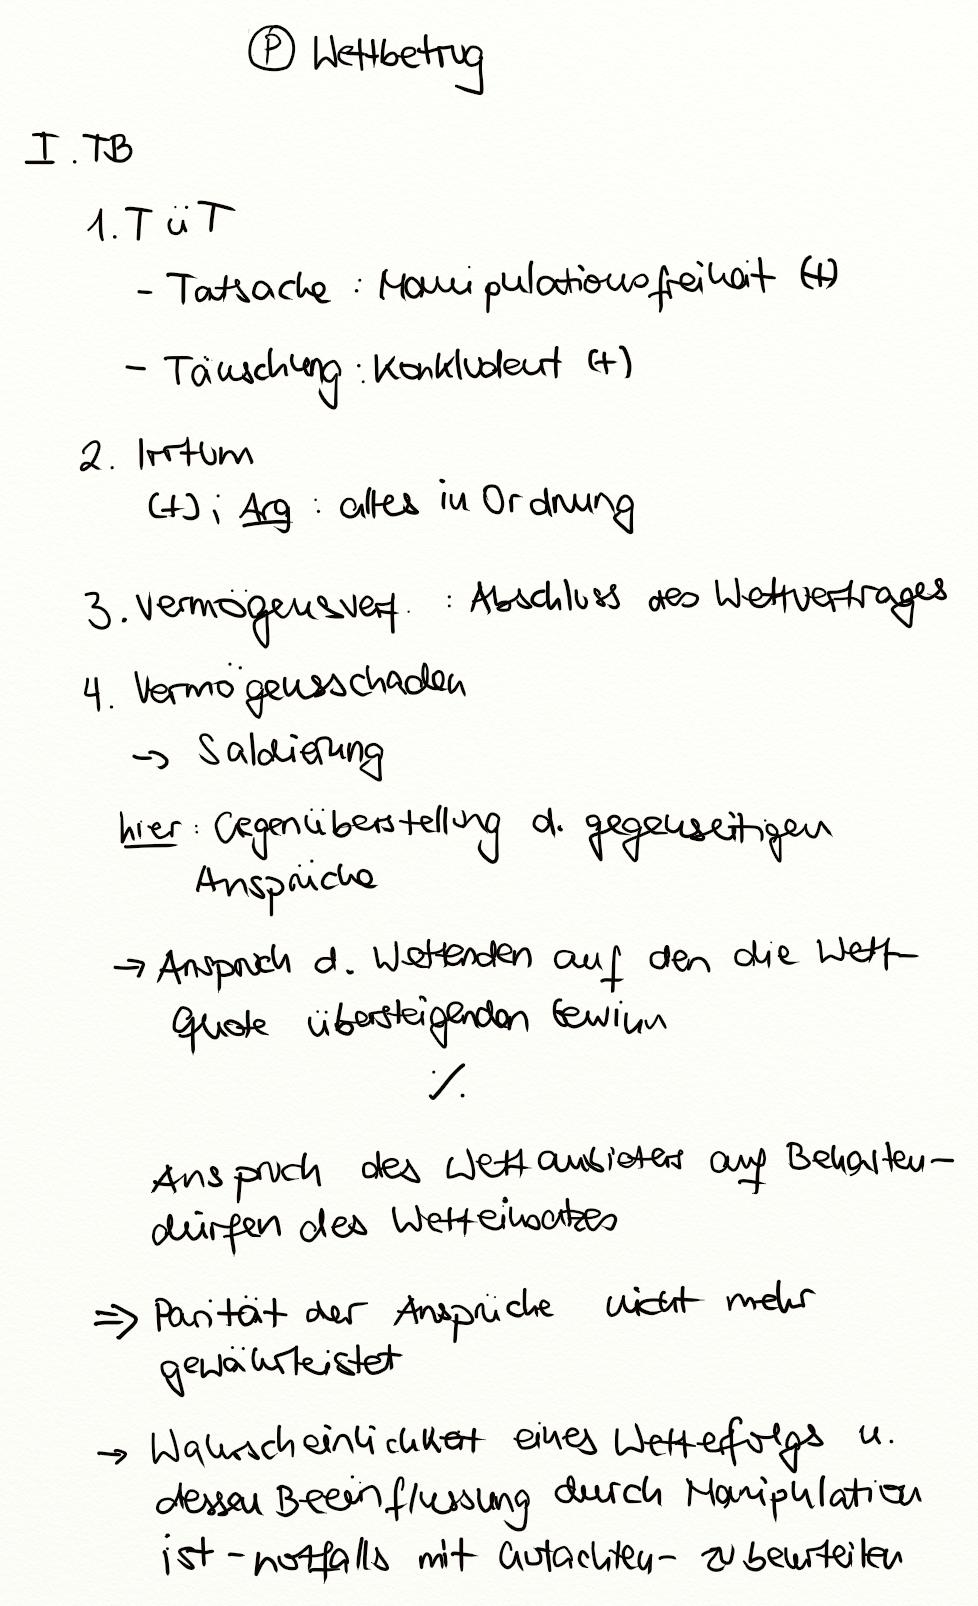 Ⓟ Wettbetrug
I. TB
1. T ü T
- Tatsache : Manipulationsfreiheit (+)
- Täuschung : Konkludent (+)
2. Irrtum
(+) ; Arg : alles in Ordnung
3. Vermögensverf. : Abschluss des Wettvertrages
4. Vermögensschaden
→ Saldierung
hier : Gegenüberstellung d. gegenseitigen
Ansprüche
→ Anspruch d. Wettenden auf den die Wett-
Quote übersteigenden Gewinn
./.
Anspruch des Wettanbieters auf Behalten-
dürfen des Wetteinsatzes
⇒ Parität der Ansprüche nicht mehr
gewährleistet
→ Wahrscheinlichkeit eines Wetterfolgs u.
dessen Beeinflussung durch Manipulation
ist - notfalls mit Gutachten - zu beurteilen